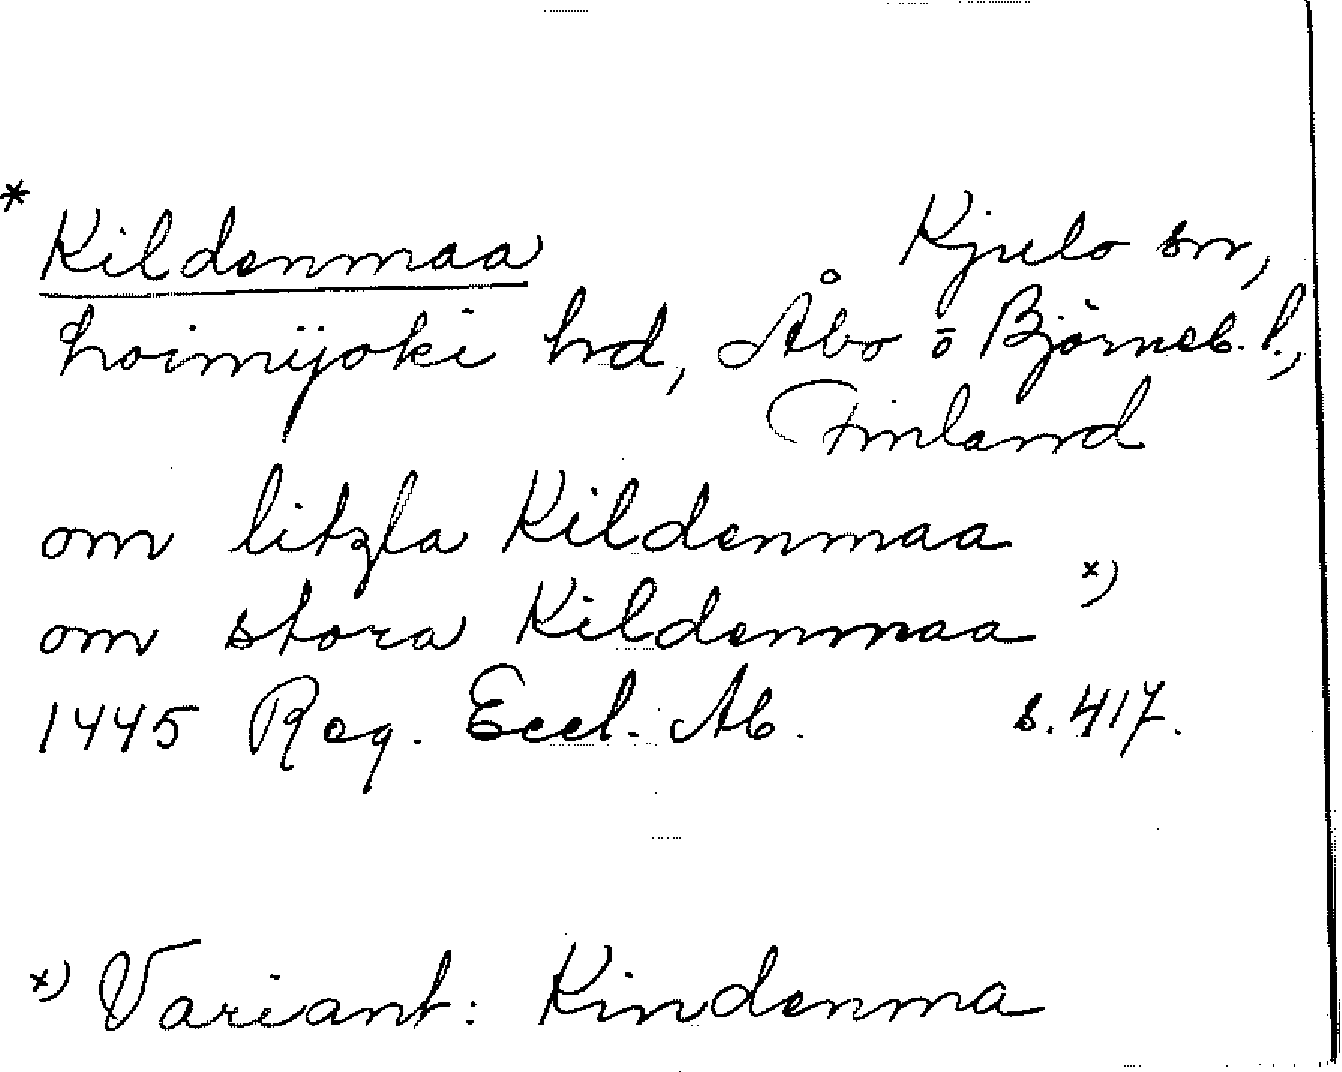 * Kildenmaa Kjulo sn,
Loimijoki hd, Åbo o Björneb. l.,
Finland
om litzla Kildenmaa
om stora Kildenmaa x)
1445 Reg. Eccl. Ab. s. 417.
x) Variant: Kindenma